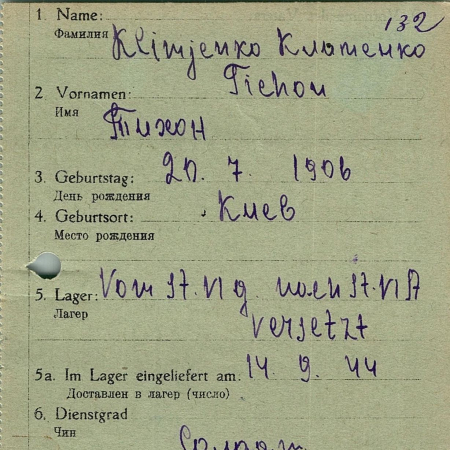 132
1. Name: Klimjenko Клименко
Фамилия
2. Vornamen: Tichon
Имя Тихон
3. Geburtstag: 20. 7. 1906
День рождения
4. Geburtsort: Киев
Место рождения
5. Lager: Vom
Лагер versetzt
5a. Im Lager eingeliefert am. 14. 9. 44
Доставлен в лагер (число)
6. Dienstgrad
Чин